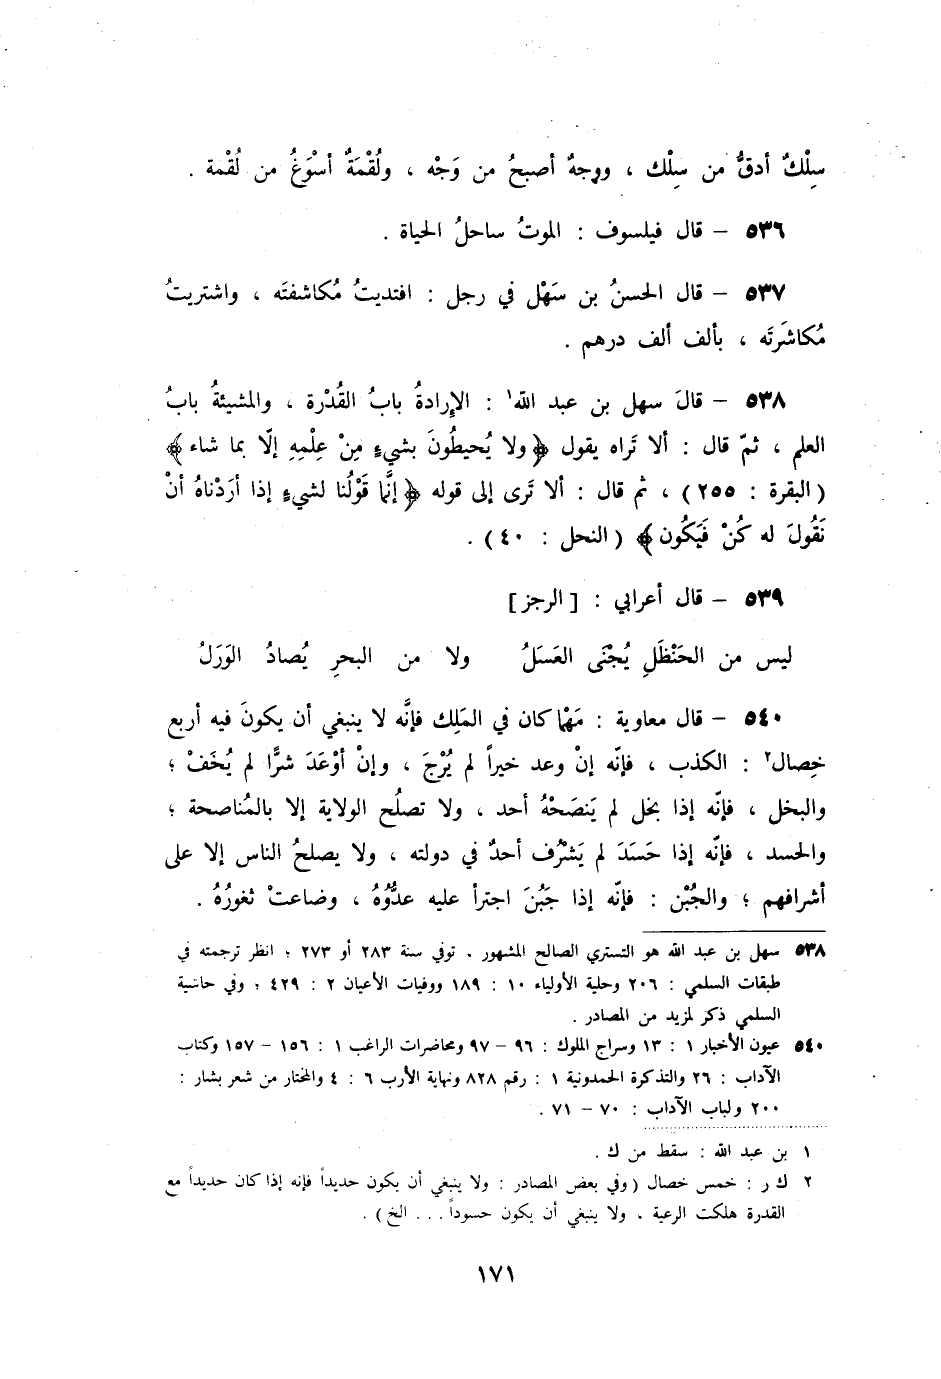 سِلْكٌ أدقُّ من سِلْك ، ووجهٌ أصبحُ من وَجْه ، ولُقْمَةٌ أسْوَغُ من لُقْمة .
٥٣٦ – قال فيلسوف : الموتُ ساحلُ الحياة .
٥٣٧ – قال الحسنُ بن سَهْل في رجل : افتديتُ مُكاشفتَه ، واشتريتُ
مُكاشَرتَه ، بألف ألف درهم .
٥٣٨ – قالَ سهل بن عبد الله١ : الإرادةُ بابُ القُدْرة ، والمشيئةُ بابُ
العلم ، ثمّ قال : ألا تَراه يقول ﴿ولا يُحيطُونَ بشيءٍ مِنْ عِلْمِهِ إلّا بما شاء﴾
(البقرة : ٢٥٥) ، ثم قال : ألا تَرى إلى قوله ﴿إنَّما قَوْلُنا لشيءٍ إذا أرَدْناهُ أنْ
نَقُولَ له كُنْ فَيَكُون﴾ (النحل : ٤٠) .
٥٣٩ – قال أعرابي : [الرجز]
ليس من الحَنْظَلِ يُجْنَى العَسَلُ ولا من البحرِ يُصادُ الوَرَلُ
٥٤٠ – قال معاوية : مَهْما كان في المَلِك فإنَّه لا ينبغي أن يكونَ فيه أربع
خِصال٢ : الكذب ، فإنّه إنْ وعد خيراً لم يُرْجَ ، وإنْ أوْعَدَ شرًّا لم يُخَفْ ؛
والبخل ، فإنّه إذا بخل لم يَنصَحْهُ أحد ، ولا تصلُح الولاية إلا بالمُناصحة ؛
والحسد ، فإنّه إذا حَسَدَ لم يَشْرُف أحدٌ في دولته ، ولا يصلحُ الناس إلا على
أشرافهم ؛ والجُبْن : فإنّه إذا جَبُنَ اجترأ عليه عدُّوُهُ ، وضاعتْ ثغورُهُ .
٥٣٨ سهل بن عبد الله هو التستري الصالح المشهور . توفي سنة ٢٨٣ أو ٢٧٣ ؛ انظر ترجمته في
طبقات السلمي : ٢٠٦ وحلية الأولياء ١٠ : ١٨٩ ووفيات الأعيان ٢ : ٤٢٩ ؛ وفي حاشية
السلمي ذكر لمزيد من المصادر .
٥٤٠ عيون الأخبار ١ : ١٣ وسراج الملوك : ٩٦ – ٩٧ ومحاضرات الراغب ١ : ١٥٦ – ١٥٧ وكتاب
الآداب : ٢٦ والتذكرة الحمدونية ١ : رقم ٨٢٨ ونهاية الأرب ٦ : ٤ والمختار من شعر بشار :
٢٠٠ ولباب الآداب : ٧٠ – ٧١ .
١ بن عبد الله : سقط من ك .
٢ ك ر : خمس خصال (وفي بعض المصادر : ولا ينبغي أن يكون حديداً فإنه إذا كان حديداً مع
القدرة هلكت الرعية . ولا ينبغي أن يكون حسوداً ... الخ) .
١٧١